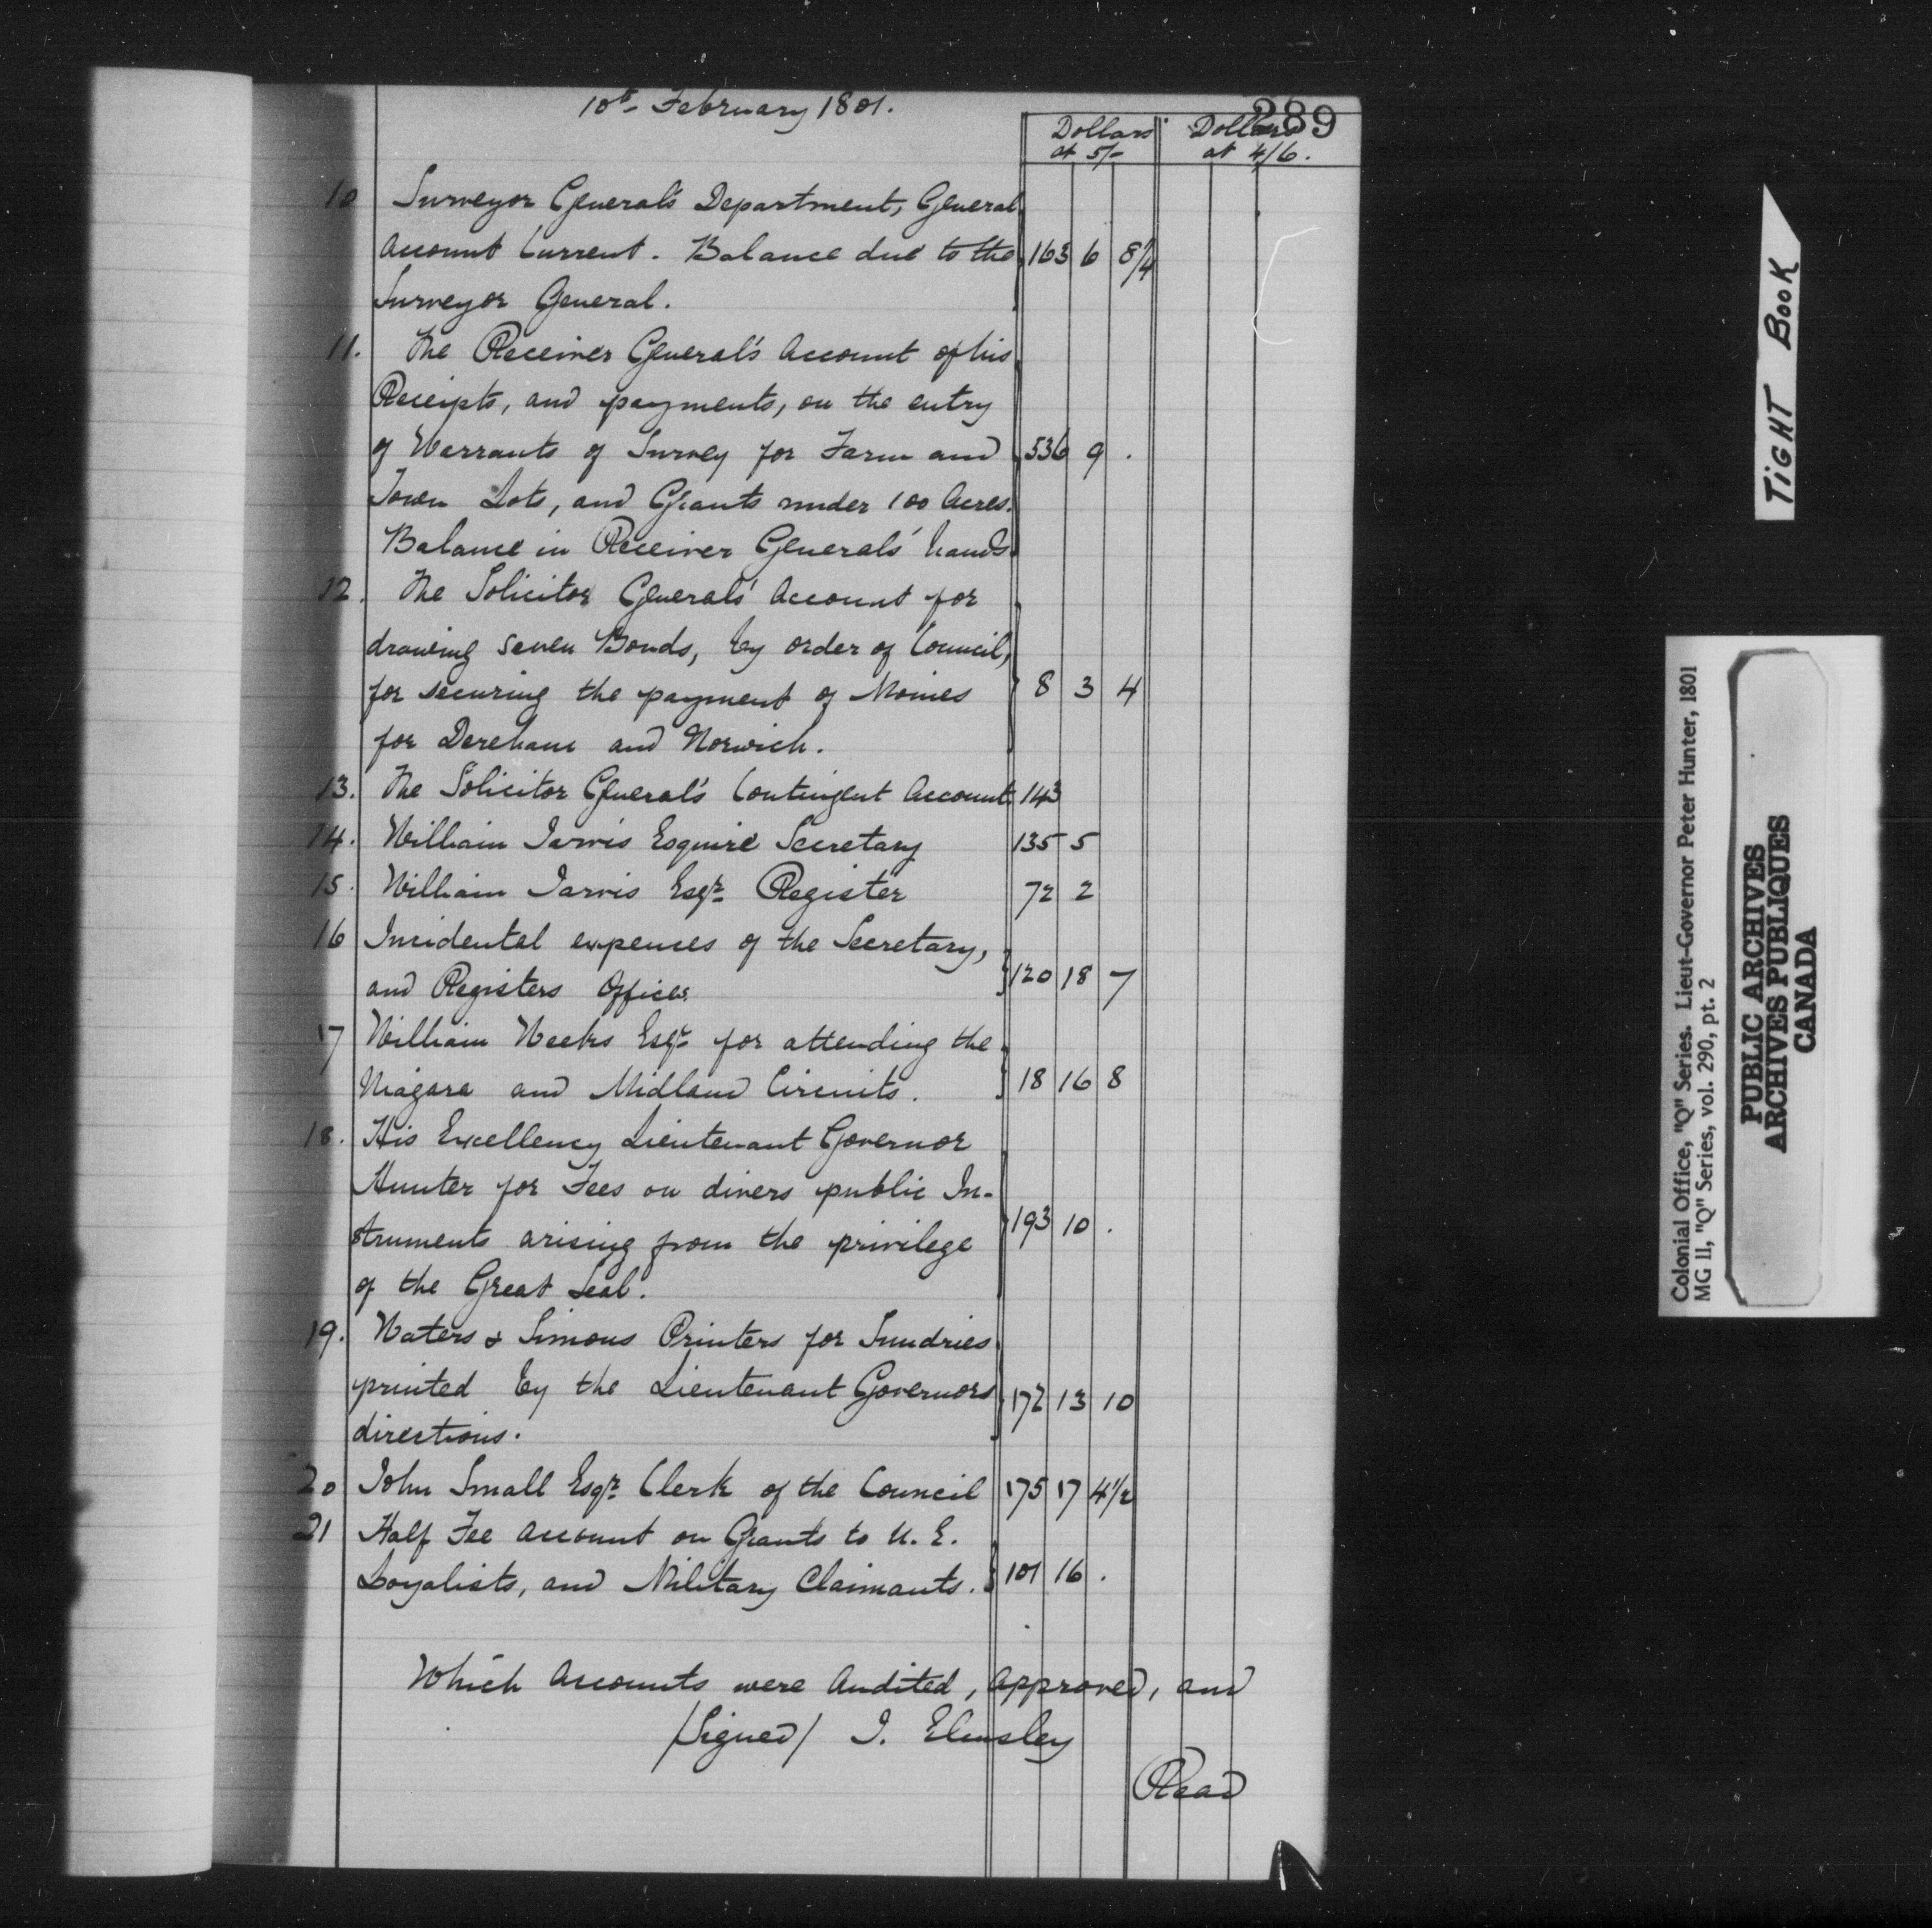 10th February 1801.
289
Dollars at 5/-
Dollars at 4/6.
10 Surveyor General's Department, General
Account Current. Balance due to the 163 6 8 1/4
Surveyor General.
11. The Receiver General's Account of his
Receipts, and payments, on the entry
of Warrants of Survey for Farm and 536 9 .
Town Lots, and Grants under 100 Acres.
Balance in Receiver Generals' hands
12. The Solicitor Generals' Account for
drawing seven Bonds, by order of Council,
for securing the payment of Monies 8 3 4
for Dereham and Norwich.
13. The Solicitor General's Contingent Account 143
14. William Jarvis Esquire Secretary 135 5
15. William Jarvis Esqr. Register 72 2
16 Incidental expences of the Secretary,
and Registers Offices. 120 18 7
17 William Weeks Esqr. for attending the
Niagara and Midland Circuits. 18 16 8
18. His Excellency Lieutenant Governor
Hunter for Fees on divers public In-
struments arising from the privilege 193 10 .
of the Great Seal.
19. Waters & Simons Printers for Sundries
printed by the Lieutenant Governors 172 13 10
directions.
20 John Small Esqr. Clerk of the Council 175 17 4 1/2
21 Half Fee Account on Grants to U. E.
Loyalists, and Military Claimants. 101 16 .
Which Accounts were Audited, Approved, and
/Signed/ J. Elmsley
Read
TIGHT BOOK
Colonial Office, "Q" Series. Lieut-Governor Peter Hunter, 1801
MG 11, "Q" Series, vol. 290, pt. 2
PUBLIC ARCHIVES
ARCHIVES PUBLIQUES
CANADA